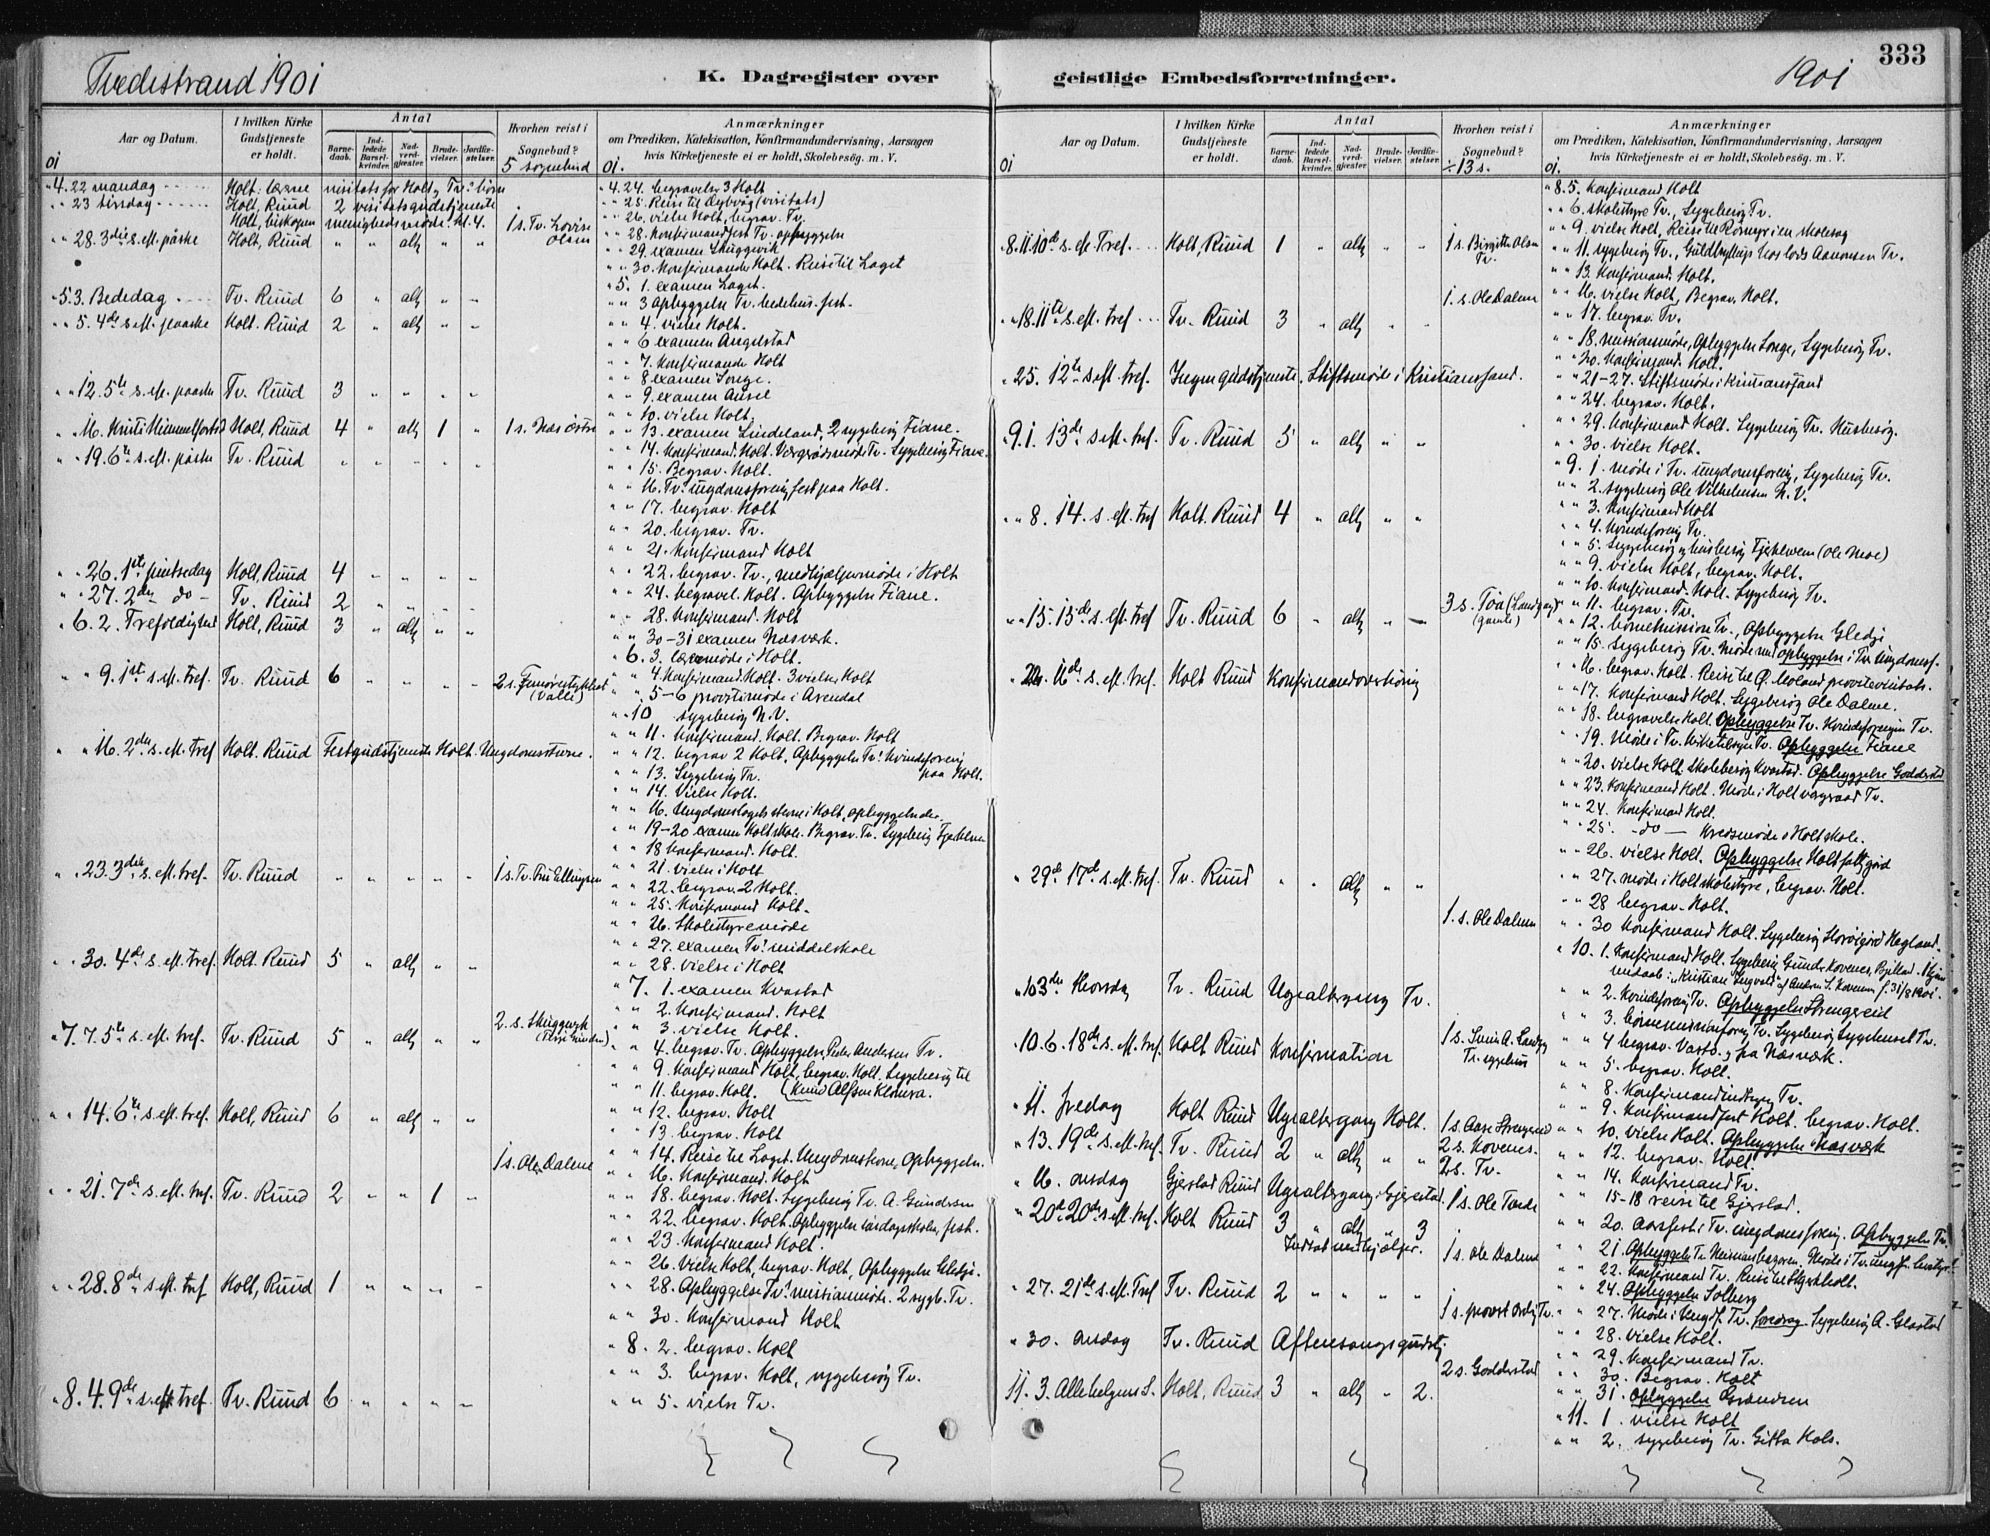 Tvedestrand 1901
K. Dagregister over
geistlige Embedsforretninger.
1901
333
Aar og Datum.
I hvilken Kirke Gudstjeneste er holdt.
Antal
Barne-daab.
Ind-ledede Barsel-kvinder.
Nad-verd-gjester.
Brude-vielser.
Jordfæ-stelser.
Hvorhen reist i Sognebud?
5 sognebud
Anmærkninger
om Prædiken, Katekisation, Konfirmandundervisning, Aarsagen
hvis Kirketjeneste ei er holdt, Skolebesøg. m. V.
01
01.
" 4. 22 mandag Holt. visitats for Holt og Tv.
" " 23 tirsdag Holt, Ruud 2 visitatsgudstjeneste
Holt, biskopen menighedsmøde kl. 4.
" " 28. 3die s. eft. påske Holt, Ruud " " altg " " 1 s. Tv. Lovise Olsen
" 5 3. Bededag Tv. Ruud 6 " altg " "
" " 5. 4de s eft. paaske Holt. Ruud 2 " altg " "
" " 12. 5te s. eft. paaske Tv. Ruud 3 " " " "
" " 16. Kristi Himmelfartsd Holt, Ruud 4 " altg 1 " 1 s. Næs
" " 19. 6te s. eft. påske Tv. Ruud " " " " "
" " 26. 1ste pintsedag Holt, Ruud 4 " " " "
" " 27. 2den do - Tv. Ruud 2 " " " "
" 6. 2. Trefoldighed Holt, Ruud 3 " altg " "
" " 9. 1ste s. eft. tref. Tv. Ruud 6 " " " " 2 s. (Valle)
" " 16. 2den s. eft. tref Holt. Ruud Festgudstjeneste Holt. Ungdomsstevne.
" " 23. 3die s. eft. tref. Tv. Ruud " " " " " 1 s. Tv. Ellingsen
" " 30. 4de s. eft. tref. Holt. Ruud 5 " altg " "
" 7. 7. 5te s. eft. tref. Tv. Ruud 5 " altg " " 2. s. Skuggevik
" " 14. 6te s. eft. tref. Holt, Ruud 6 " altg " "
" " 21. 7de s. eft. tref. Tv. Ruud 2 " " 1 " 1 s. Ole Dalene
" " 28. 8de s eft. tref Holt, Ruud 1 " " " "
" 8. 4. 9de s. eft tref. Tv. Ruud 6 " " " "
" 4. 24. begravelse 3 Holt
" " 25. Reise til Dybvåg (visitats)
" " 26. vielse Holt, begrav. Tv.
" " 28. Konfirmandfest Tv. opbyggelse
" " 29. examen Skuggevik
" " 30. Konfirmander Holt. Reise til Laget
" 5. 1. examen Laget.
" " 3 Opbyggelse Tv. bedehus. fest.
" " 4. vielse Holt.
" " 6 examen Angelstad
" " 7. Konfirmander Holt
" " 8 examen Songe.
" " 9. examen
" " 10. vielse Holt.
" " 13. examen Lindeland, 2 sygebesøg Fiane.
" " 14. Konfirmand. Holt. Vergerådsmøde Tv. Sygebesøg Fiane.
" " 15. Begrav. Holt.
" " 16. Tv: ungdomsforenig fest paa Holt.
" " 17. begrav. Holt
" " 20. begrav. Tv.
" " 21. Konfirmand Holt
" " 22. begrav. Tv., medhjælpermøde i Holt
" " 24. begravel. Holt. Opbyggelse Fiane.
" " 28. Konfirmand. Holt
" " 30-31 examen Næsværk.
" 6. 3. møde i Holt.
" " 4. Konfirmand. Holt. 3 vielser Holt
" " 5-6 provstimøde i Arendal
" " 10 sygebesøg N.V.
" " 11. Konfirmand. Holt. Begrav. Holt
" " 12. begrav 2 Holt, Opbyggelse Tv: Kvindeforenig paa Holt.
" " 13. Sygebesøg Tv.
" " 14. Vielse Holt.
" " 16. Ungdomslagets stevne i Holt, opbyggelse do.
" " 19-20 examen Holt skole. Begrav. Tv. Sygebesøg
" " 18 Konfirmand. Holt.
" " 21. vielse i Holt
" " 22. begrav. 2 Holt.
" " 25. Konfirmand Holt.
" " 26. Skolestyremøde
" " 27. examen Tv: middelskole
" " 28. vielse i Holt
" 7. 1. examen Kvastad
" " 2. Konfirmand. Holt
" " 3. vielse Holt.
" " 4. begrav. Tv. Opbyggelse Peder Andersen Tv.
" " 9. Konfirmand Holt, begrav. Holt. Sygebesøg til
" " 11. begrav. Holt. (Knud Alfsen
" " 12. begrav. Holt
" " 13. begrav. Holt
" " 14. Reise til Laget. Opbyggelse.
" " 16. Konfirmand. Holt
" " 18. begrav. Holt. Sygebesøg Tv. A. Gundersen
" " 22. begrav. Holt. Opbyggelse søndagsskolen, fest.
" " 23. Konfirmand Holt.
" " 26. Vielse Holt, begrav. Holt, Opbyggelse Gledje.
" " 28. Opbyggelse Tv: missionsmøde. 2 sygb. Tv.
" " 30. Konfirmand Holt
" 8. 2. begrav. Holt
" " 3. begrav. Holt, sygebesøg Tv.
" " 5. vielse Tv.
Aar og Datum.
I hvilken Kirke Gudstjeneste er holdt.
Antal
Barne-daab.
Ind-ledede Barsel-kvinder.
Nad-verd-gjester.
Brude-vielser.
Jordfæ-stelser.
Hvorhen reist i Sognebud?
÷ 13 s.
Anmærkninger
om Prædiken, Katekisation, Konfirmandundervisning, Aarsagen
hvis Kirketjeneste ei er holdt, Skolebesøg. m. V.
01
01.
8. 11. 10de s. e. Tref. Holt, Ruud 1 " altg " " 1 s. Birgitte Olsen Tv.
1. s. Ole Dalene
" " 18. 11te s. eft. tref Tv. Ruud 3 " altg " "
" 25. 12te s eft. tref. Ingen gudstjeneste. Stiftsmøde i Kristianssand.
" 9. 1. 13de s eft. tref. Tv. Ruud 5 " altg " "
" " 8. 14. s. eft. tref Holt. Ruud 4 " altg " "
" " 15. 15de s. eft. tref Tv. Ruud 6 " altg " " 3 s.
" 22. 16de s. eft. tref. Holt Ruud Konfirmandoverhøring
" 29de 17de s. eft. tref. Tv. Ruud " " altg " "
1. s. Ole Dalene
" 10 3die thorsdag Tv. Ruud Ugealtergang Tv.
" 10. 6. 18de s. eft. tref. Holt Ruud Konfirmation 1 s. Svein A.
" 11. fredag Holt Ruud Ugealtergang Holt. 1 s. Aase Strengereid
" 13. 19de s. eft. tref. Tv. Ruud 2 " altg " " 2 s. Kovenes.
2 s. Tv.
" 16. onsdag Gjerstad Ruud Ugealtergang i Gjerestad. 1 s. Ole Tande
" 20de 20de s eft. tref. Holt Ruud 3 " altg " 3
Indsat medhjælper. 1 s. Ole Dalene
" 27. 21de s. eft. Tref Tv. Ruud 2 " " " " 1 s. provst Tv.
" 30. onsdag Tv. Ruud Aftensangsgudstj.
2 s. Goddersstad
11. 3. Allehelgens S. Holt, Ruud 3 " altg " 2.
" 8. 5. Konfirmand Holt
" " 6. skolestyre Tv., Sygebesøg Tv.
" " 9. vielse Holt, Reise til
" " 11. sygebesøg Tv., Guldbryllup hos lods Aanonsen Tv.
" " 13. Konfirmand. Holt.
" " 16. vielse Holt, Begrav. Holt.
" " 17. begrav. Tv.
" " 18. missionsmøde, Opbyggelse Songe, Sygebesøg Tv.
" " 20. Konfirmand. Holt.
" " 21-27. Stiftsmøde i Kristianssand
" " 24. begrav. Holt.
" " 29. Konfirmand Holt. Sygebesøg Tv. Husbesøg.
" " 30. vielse Holt.
" 9. 1. møde i Tv. Ungdomsforenig, Sygebesøg Tv.
" " 2. sygebesøg Ole Vilhelmsen N.V.
" " 3. Konfirmand Holt
" " 4. Kvindeforenig Tv.
" " 5. Sygebesøg og husbesøg (Ole Moe)
" " 9. vielse Holt, begrav. Holt.
" " 10. Konfirmand. Holt. Sygebesøg Tv.
" " 11. begrav. Tv.
" " 12. børnemission Tv., Opbyggelse Gledje
" " 15. Sygebesøg Tv. Møde med opbyggelse i Tv. Ungdomsf.
" " 16. begrav. Holt. Reise til Ø. Moland provstevisitats.
" " 17. Konfirmand Holt. Sygebesøg Ole Dalene.
" " 18. begravelse Holt. Opbyggelse Tv. Kvindeforenigen Tv.
" " 19. Møde i Tv. Kirketilsyn Tv. Opbyggelse Fiane
" " 20. vielse Holt. Skolebesøg Kvastad. Opbyggelse Goddersstad
" " 23. Konfirmand Holt. Møde i Holt vergeraad Tv.
" " 24. Konfirmand Holt.
" " 25. - do - Kredsmøde Holt skole.
" " 26. vielse Holt. Opbyggelse Holt fattiggård
" " 27. Møde i Holt skolestyre, begrav. Holt.
" " 28 begrav. Holt.
" " 30 Konfirmand Holt. Sygebesøg Hegland.
" 10. 1. Konfirmand Holt. Sygebesøg Gunder Kovenes,
f. 31/8 1901.
" " 2. Kvindeforenig Tv. Opbyggelse Strengereid
" " 3. børnemissionsforenig Tv. Sygebesøg Sygehuset Tv.
" " 4 begrav. paa Næsværk.
" " 5. begrav. Holt.
" " 8. Konfirmand Tv.
" " 9. Konfirmandfest Holt. begrav. Holt.
" " 10. vielse Holt. Opbyggelse Næsværk
" " 12. begrav. Holt.
" " 14. Konfirmand Tv.
" " 15-18 reise til Gjerstad.
" " 20. Aarsfest i Tv. ungdomsforenig. Opbyggelse Tv.
" " 21. Opbyggelse Tv.
" " 22. Konfirmand Tv. Reise til
" " 24. Opbyggelse Solberg
" " 27. Møde i Ungdf. Tv. foredrag. Sygebesøg A. Glastad
" " 28. vielse Holt.
" " 29. Konfirmand Tv.
" " 30. Begrav. Holt
" " 31. Opbyggelse
" 11. 1. vielse Holt
" " 2. sygebesøg Tv. Gitta Hals.